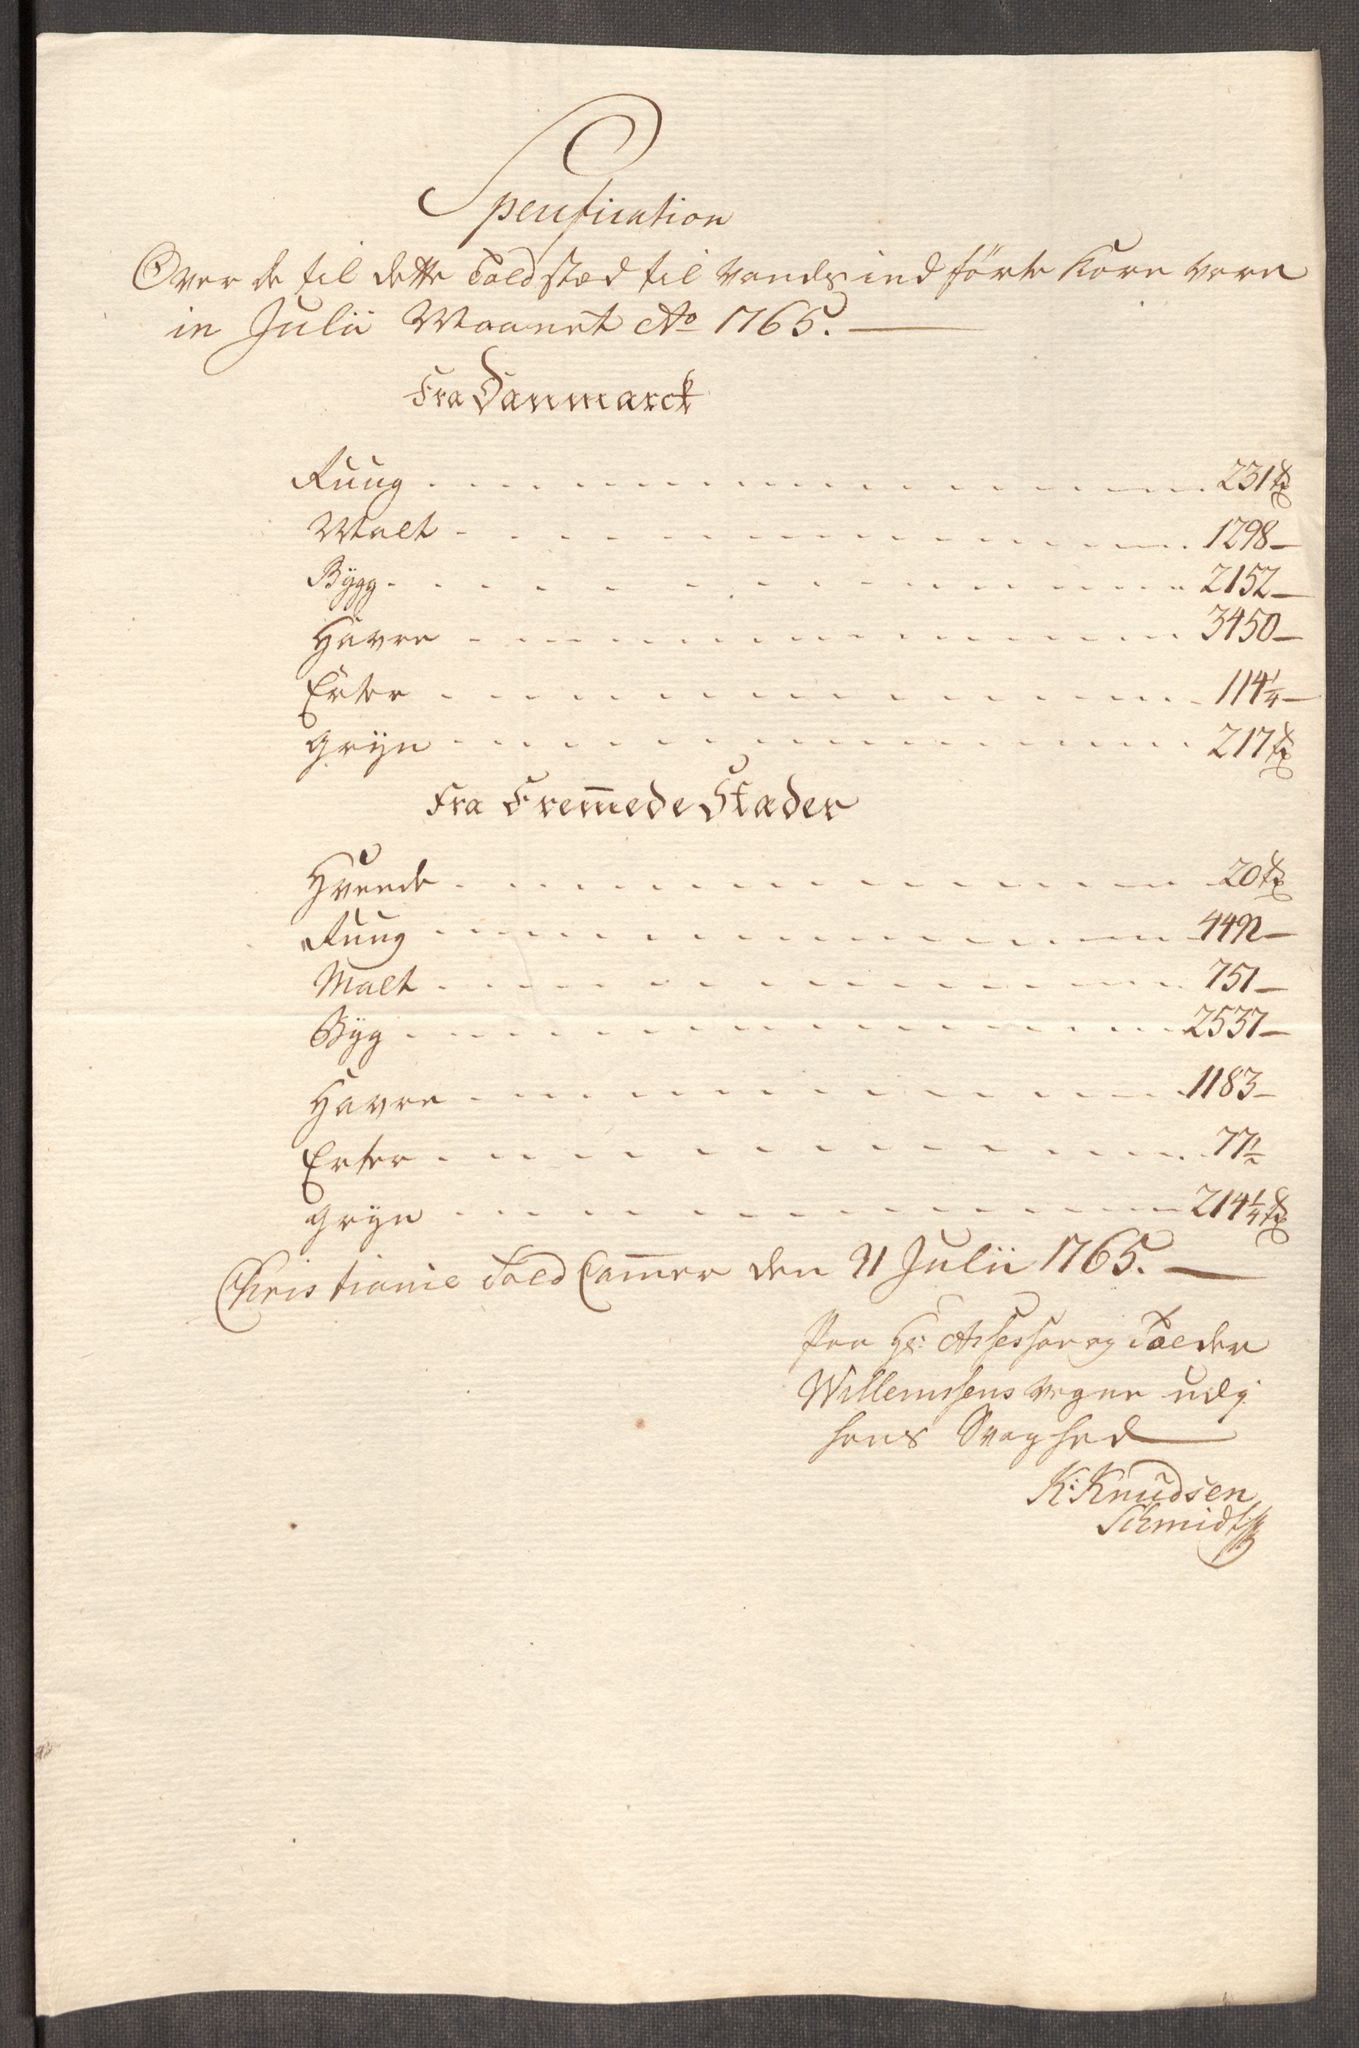 Specification
Over de til dette Toldsted til Vands indförte Korn Vare
in Julii Maanet Ao 1765.
Fra Danmarck
Ruug 231 Tdr
Malt 1298 —
Bÿgg 2152 —
Havre 3450 —
Erter 114 1/4 —
Grÿn 217 Tdr
Fra Fremede Stæder
Hveede 20 Tdr
Ruug 4492 —
Malt 751 —
Bÿg 2537 —
Havre 1183 —
Erter 77 1/2
Grÿn 214 1/4 Tdr
Christiania Told Camer den 31 Julii 1765.
Paa Hr: Assessor og Tolder
Willemsens Vegne udj
hans Svaghed
K: Knudsen
Schmidt